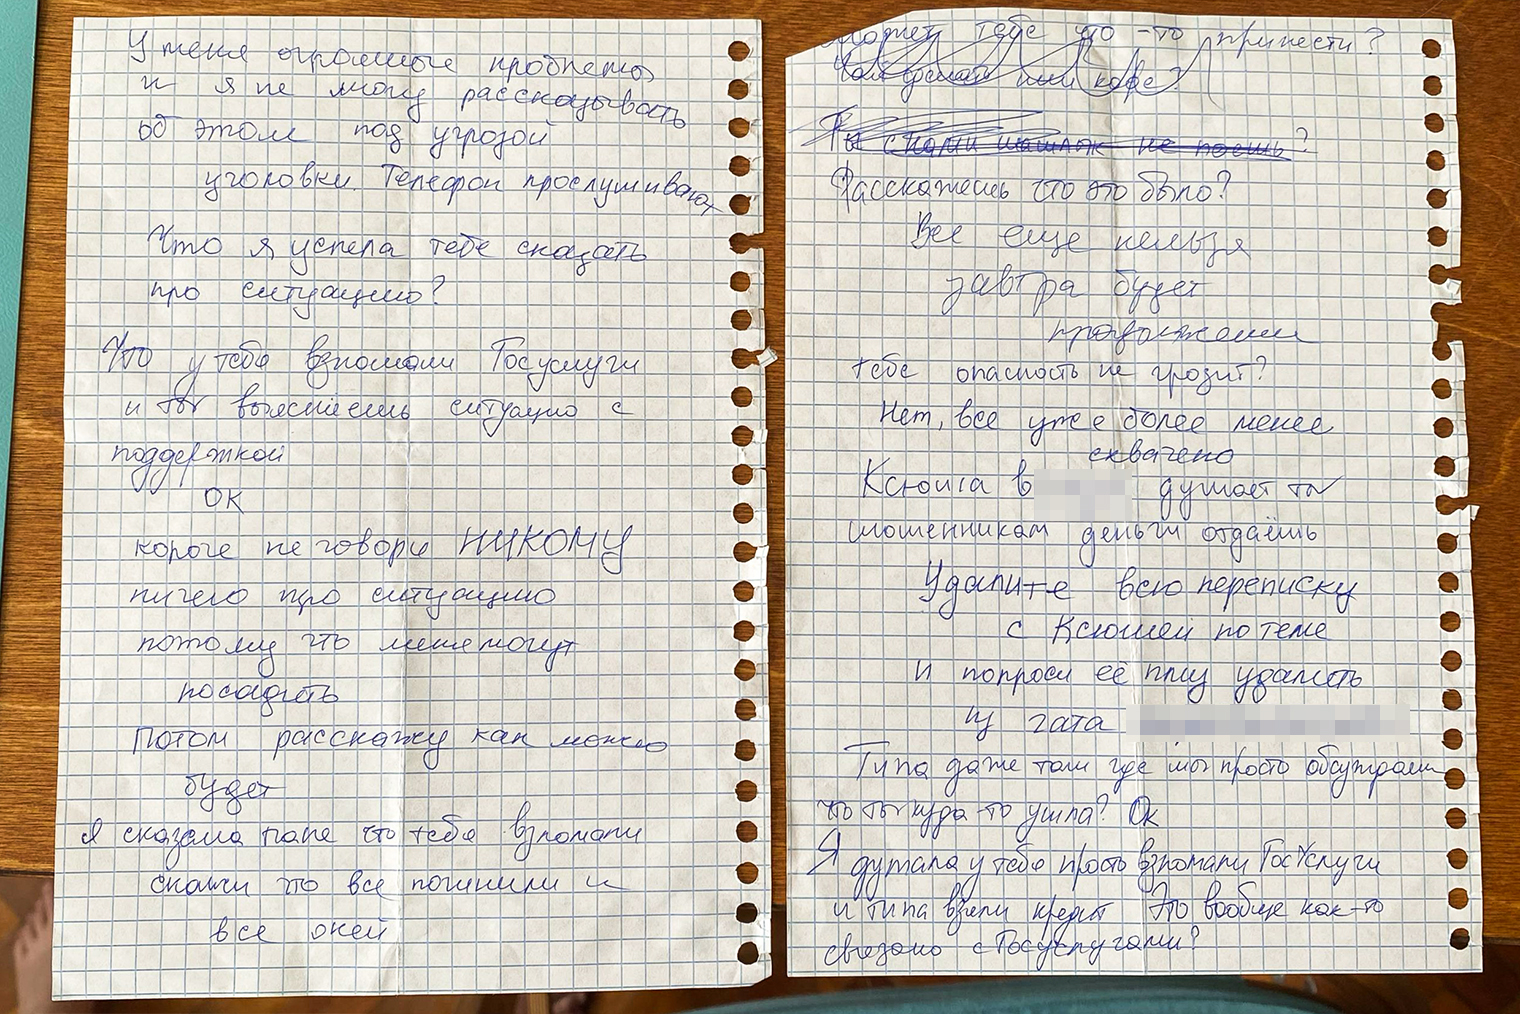 У меня огромные проблемы
и я не могу рассказывать
об этом под угрозой
уголовки. Телефон прослушивают
Что я успела тебе сказать
про ситуацию?
Что у тебя взломали Госуслуги
и ты выясняешь ситуацию с
поддержкой
ОК
короче не говори НИКОМУ
ничего про ситуацию
потому что меня могут
посадить
Потом расскажу как можно
будет
Я сказала папе что тебя взломали
скажи что все починили и
все окей
может тебе что-то принести?
Чай сделать или кофе?
Ты с нами шашлык не поешь?
Расскажешь что это было?
Все еще нельзя
завтра будет
продолжение
тебе опасность не грозит?
Нет, все уже более менее
схвачено
Ксюша в думает ты
мошенникам деньги отдаёшь
Удалите всю переписку
с Ксюшей по теме
И попроси её плиз удалить
из чата
Типа даже там где мы просто обсуждали
что ты куда-то ушла? Ок
Я думала у тебя просто взломали ГосУслуги
и типа взяли кредит Это вообще как-то
связано с Госуслугами?